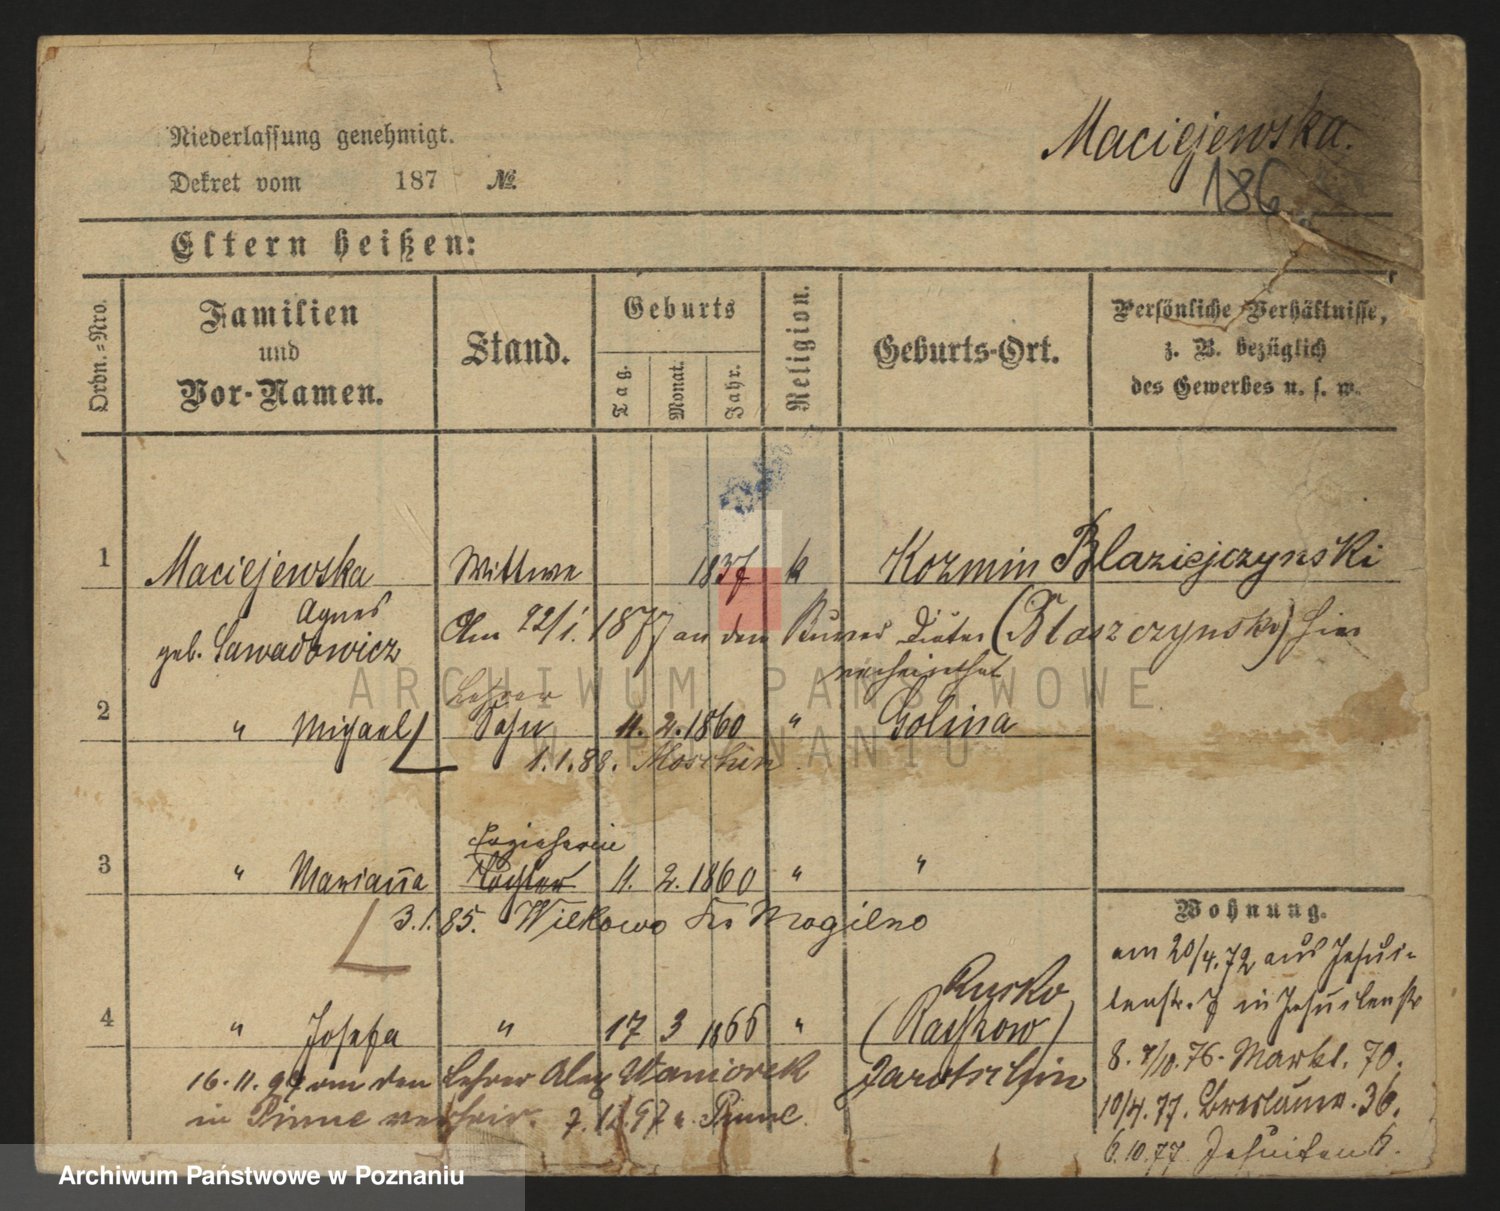 Niederlassung genehmigt.
Dekret vom 187 №
Maciejewska.
186
Eltern heißen:
Ordn.-Nro.
Familien
und
Vor-Namen.
Stand.
Geburts
Tag.
Monat.
Jahr.
Religion.
Geburts-Ort.
Persönliche Verhältnisse,
z. B. bezüglich
des Gewerbes u. s. w.
1 Maciejewska Wittwe 1837 k Kozmin Blaziejczynski
Agnes
geb. Sawadowicz
Am 22/1. 1877 an den Diätar (Blaszczynski) hier
verheirathet
Lehrer
2 " Michael Sohn 11. 2. 1860 " Golina
1.1.88. Moschin
Erzieherin
3 " Marianna Tochter 11. 2. 1860 " "
3.1.85. Wilkowo Krs Mogilno
Rusko
4 " Josefa " 17 3 1866 " (Raschkow)
Jarotschin
16.11.97 an den Lehrer Alex Waniorek
in Pinne verheir. 7.12.97 n. Pinne.
Wohnung.
am 20/4.72 aus Jesui-
tenstr. 7 in Jesuitenstr
8. 7/10.76. Markt. 70.
10/4.77. Breslauer. 36.
6.10.77 Jesuiten
ARCHIWUM PAŃSTWOWE
W POZNANIU
Archiwum Państwowe w Poznaniu